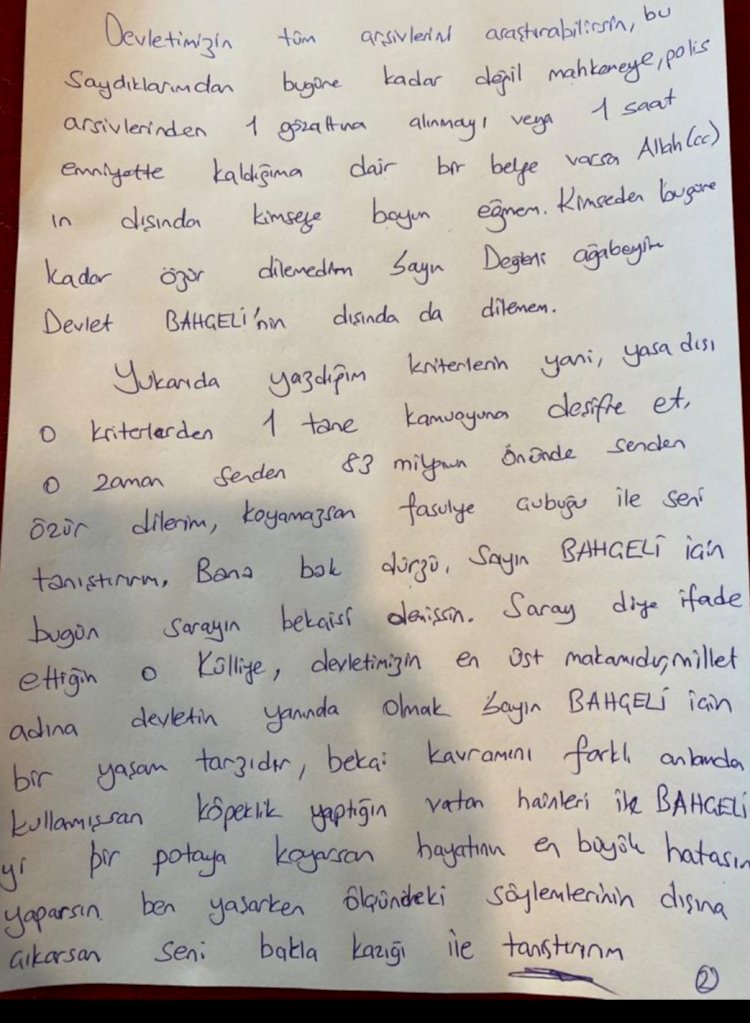 Devletimizin tüm arşivlerini araştırabilirsin, bu
Saydıklarımdan bugüne kadar değil mahkemeye, polis
arşivlerinden 1 gözaltına alınmayı veya 1 saat
emniyette kaldığıma dair bir belge varsa Allah(cc)
ın dışında kimseye boyun eğmem. Kimseden bugüne
kadar özür dilemedim Sayın Değerli ağabeyim
Devlet BAHÇELİ'nin dışında da dilemem.
Yukarıda yazdığım kriterlerin yani, yasa dışı
o kriterlerden 1 tane kamuoyuna desifre et,
o zaman senden 83 milyonun önünde senden
özür dilerim, koyamazsan fasulye çubuğu ile seni
tanıştırırım, Bana bak dürzü, Sayın BAHÇELİ için
bugün sarayın bekaisi demişsin. Saray diye ifade
ettiğin o Külliye, devletimizin en üst makamıdır, millet
adına devletin yanında olmak Sayın BAHÇELİ için
bir yaşam tarzıdır, bekai kavramını farklı anlamda
kullanmışsan köpeklik yaptığın vatan hainleri ile BAHÇELİ
yi bir potaya koyarsan hayatının en büyük hatasını
yaparsın ben yaşarken ölçündeki söylemlerinin dışına
çıkarsan seni bakla kazığı ile tanıştırırım
2